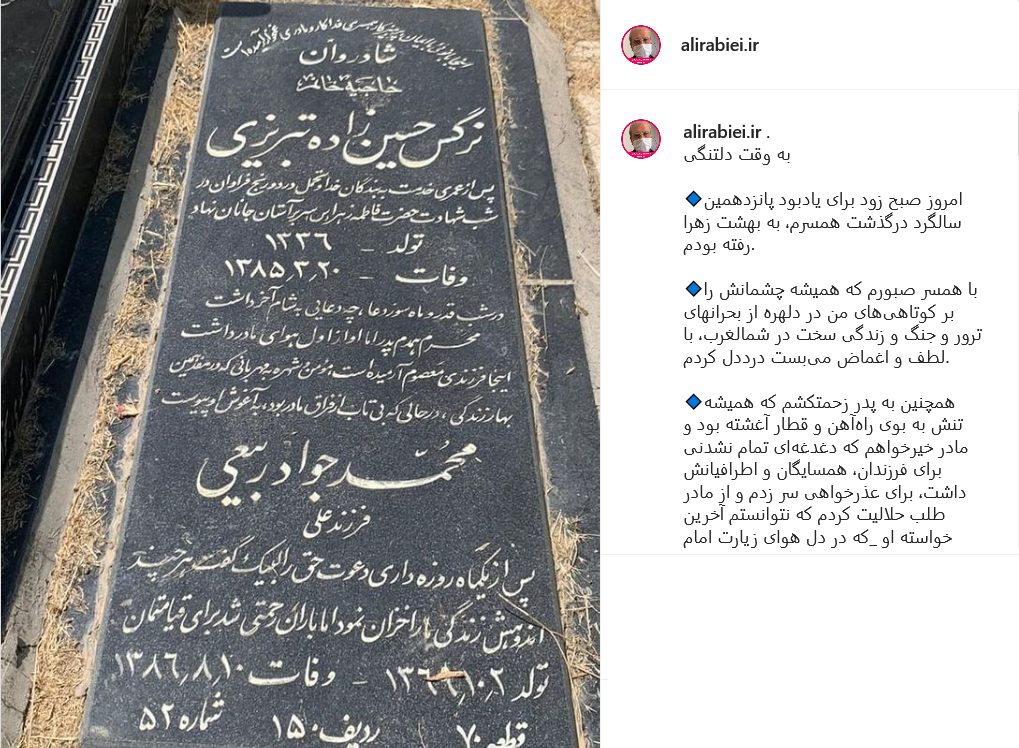 شادروان
حاجیه خانم
نرگس حسین زاده تبریزی
پس از عمری خدمت به بندگان خدا و تحمل درد و رنج فراوان در
شب شهادت حضرت فاطمه زهرا بر آستان جانان نهاد
تولد - ۱۳۳۶
وفات - ۱۳۸۵٫۳٫۲۰
در شب قدر و ماه سوز دعا، چه دعایی به شام آخر داشت
محرم و همدم پدر اما او از اول هوای مادر داشت
اینجا فرزندی معصوم آرمیده است، مؤمن شهره به مهربانی که در هفدهمین
بهار زندگی، در حالی که بی تاب از فراق مادر بود، به آغوش او پیوست
محمد جواد ربیعی
فرزند علی
پس از یکماه روزه داری دعوت حق را لبیک گفت هر چند
زندگی ما را خزان نمود اما باران رحمتی شد برای قیامتمان
تولد - وفات ۱۳۸۶٫۸٫۱۰
قطعه ۷۰ ردیف ۱۵۰ شماره ۵۲
alirabiei.ir
alirabiei.ir .
به وقت دلتنگی
🔷امروز صبح زود برای یادبود پانزدهمین
سالگرد درگذشت همسرم، به بهشت زهرا
رفته بودم.
🔷با همسر صبورم که همیشه چشمانش را
بر کوتاهی‌های من در دلهره از بحرانهای
ترور و جنگ و زندگی سخت در شمالغرب، با
لطف و اغماض می‌بست درددل کردم.
🔷همچنین به پدر زحمتکشم که همیشه
تنش به بوی راه‌آهن و قطار آغشته بود و
مادر خیرخواهم که دغدغه‌ای تمام نشدنی
برای فرزندان، همسایگان و اطرافیانش
داشت، برای عذرخواهی سر زدم و از مادر
طلب حلالیت کردم که نتوانستم آخرین
خواسته او _که در دل هوای زیارت امام